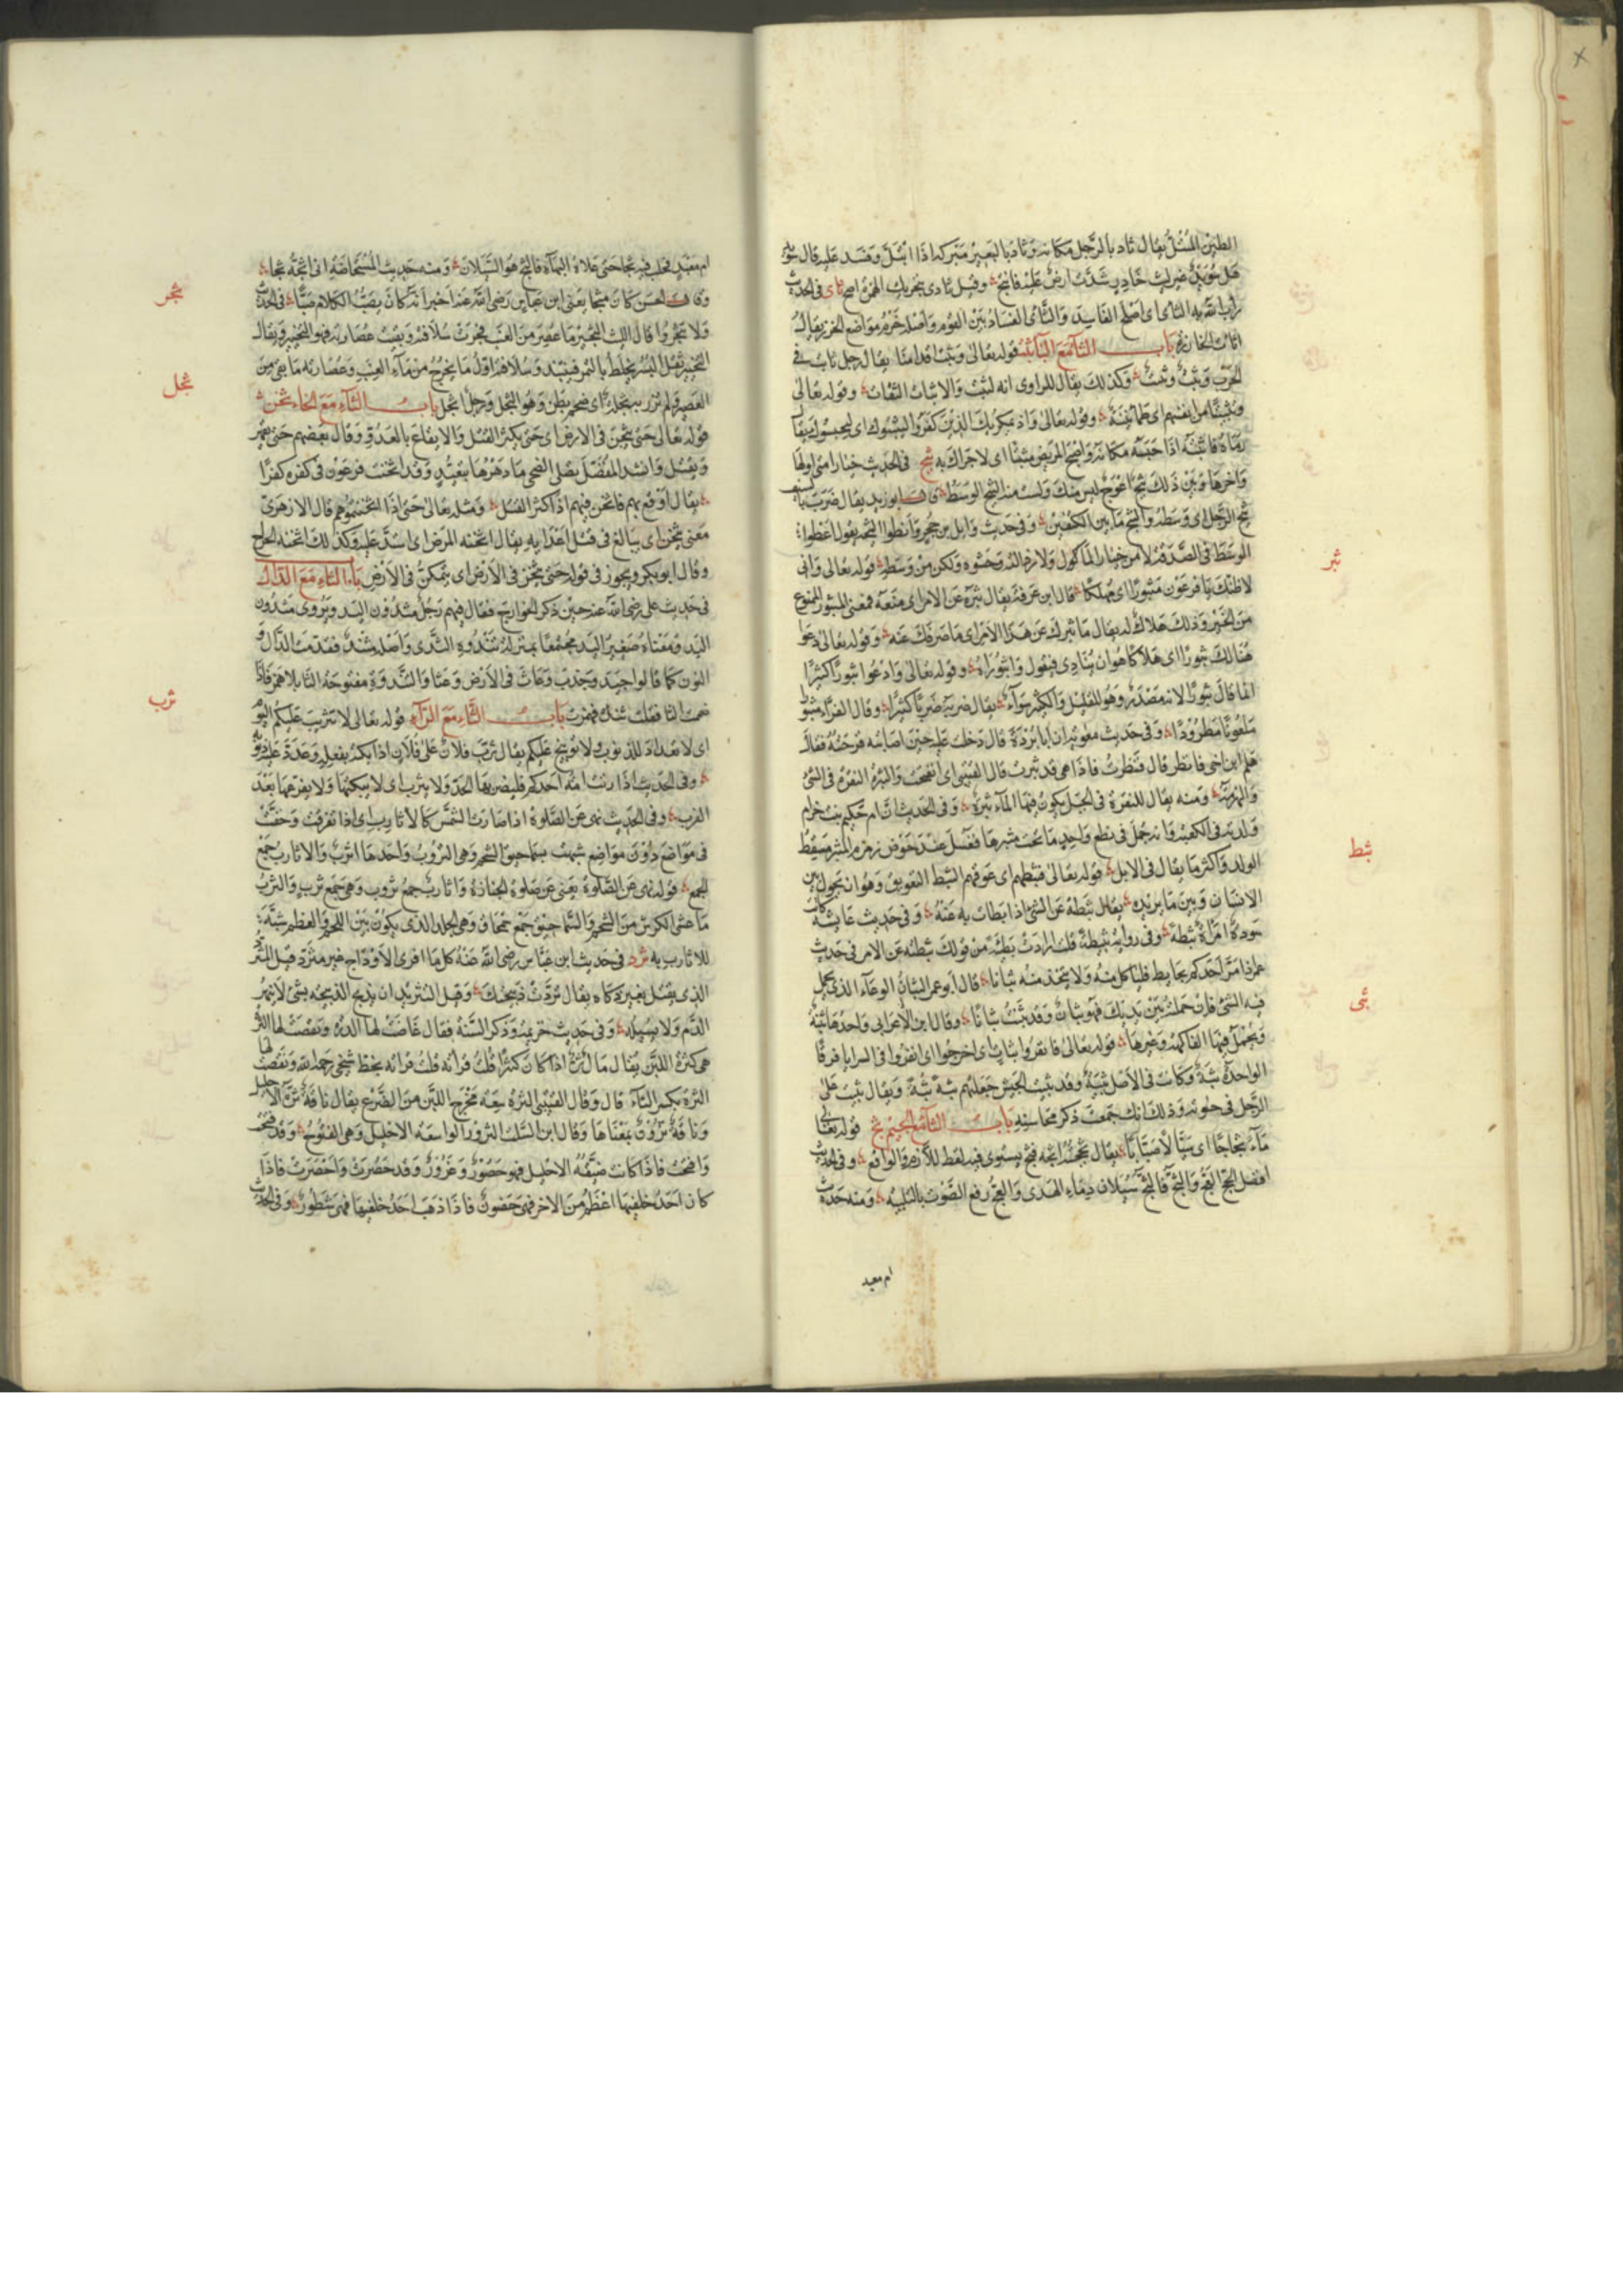 الطين المبتل يقال ثاد بالرجل مكانه وثاد بالبعير مبركه اذا ابتل وفسد عليه قال
هل سويد غير ليث خادر ثئدت ارض عليه فانتجع وقيل ثادى بتحريك الهمزة اصح ثاى في الحديث
راب الله به الثاى اى اصلح الفاسد والثاى الفساد بين القوم واصله خرم مواضع الخرز يقال
اثات الخارزة باب الثاء مع الباء ثبت قوله تعالى وثبت اقدامنا يقال رجل ثابت في
الحرب وثبت وثبت وكذلك يقال للراوى انه لثبت والاثبات الثقات وقوله تعالى
وتثبيتا من انفسهم اى طمانينة وقوله تعالى واذ يمكر بك الذين كفروا ليثبتوك اى ليحبسوك يقال
رماه فاثبته اذا حبسه مكانه واصبح المريض مثبتا اى لا حراك به ثبج في الحديث خيار امتى اولها
وآخرها وبين ذلك ثبج اعوج ليس منك ولست منه الثبج الوسط وقال ابو زيد يقال ضرب بالسيف
ثبج الرجل اى وسطه والثبج ما بين الكتفين وفي حديث وايل بن حجر وانطوا الثبجة يقول اعطوا
الوسط في الصدقة لا من خيار المال ولا رذالته وحشوه ولكن من وسطه قوله تعالى وانى
لاظنك يا فرعون مثبورا اى مهلكا قال ابن عرفة يقال ثبره عن الامر اى منعه فمعنى المثبور الممنوع
من الخير وذلك هلاك له يقال ما ثبرك عن هذا الامر اى ما صرفك عنه وقوله تعالى دعوا
هنالك ثبورا اى هلاكا هو ان ينادى فيقول واثبوراه وقوله تعالى وادعوا ثبورا كثيرا
انما قال ثبورا لانه مصدر وهو للقليل والكثير سواء يقال ضربته ضربا كثيرا وقال الفراء مثبورا
ملعونا مطرودا وفي حديث معوية ان ابا بردة قال دخلت عليه حين اصابته قرحته فقال
هلم ابن اخى فانظر قال فنظرت فاذا هى قد ثبرت قال القتيبى اى انفتحت والثبرة النقرة في الشئ
والهزمة ومنه يقال للنقرة في الجبل يكون فيها الماء ثبرة وفي الحديث ان ام حكيم بنت حزام
ولدته في الكعبة وانه حمل في نطع واخذ ما تحت مثبرها فغسل عند حوض زمزم المثبر مسقط
الولد واكثر ما يقال في الابل قوله تعالى فثبطهم اى عوقهم الثبط التعويق وهو ان تحول بين
الانسان وبين ما يريده يقال ثبطه عن الشئ اذا بطات به عنه وفي حديث عايشة كانت
سودة امراة ثبطة وفي رواية ثبيطة قلت ارادت بطيئة من قولك ثبطته عن الامر في حديث
عمر اذا مر احدكم بحايط فلياكل منه ولا يتخذ منه ثبانا قال ابو عمر الثبان الوعاء الذى يحمل
فيه الشئ فان حملته بين يديك فهو ثبان وقد ثبنت ثبانا وقال ابن الاعرابى واحدها ثبنة
ويحمل فيها الفاكهة وغيرها قوله تعالى فانفروا ثبات اى اخرجوا اى انفروا في السرايا فرقا
الواحدة ثبة وكانت في الاصل ثبية وقد ثبيت الجيش جعلتهم ثبة ثبة ويقال ثبيت على
الرجل في حياته وذلك انك جمعت ذكر محاسنه باب الثاء مع الجيم ثج قوله تعالى
ماء ثجاجا اى سيالا صبابا يقال ثججته اثجه فثج يستوى فيه لفظ اللازم والواقع وفي الحديث
افضل الحج العج والثج فالثج سيلان دماء الهدى والعج رفع الصوت بالتلبية ومنه حديث
ام معبد
ثبر
ثبط
ثبى
ام معبد فحلب فيه ثجا حتى علاه البهاء فالثج هو السيلان ومنه حديث المستحاضة انى اثجه ثجا
وقال الحسن كان مثجا يعنى ابن عباس رضى الله عنه اخبر انه كان يصب الكلام صبا في الحديث
ولا تثجروا قال الليث الثجير ما عصر من العنب فجرت سلافته وبقيت عصارته فهو الثجير ويقال
الثجير ثفل البسر يخلط بالتمر فينتبذ وسلافته اول ما يخرج من ماء العنب وعصارته ما بقى من
العصر ولم تزر به ثجلة اى ضخم بطن وهو الثجل ورجل اثجل باب الثاء مع الخاء ثخن
قوله تعالى حتى يثخن في الارض اى حتى يكثر القتل والايقاع بالعدو وقال بعضهم حتى يقهر
ويقتل وانشد المفضل تصلى الضحى ما دهرها بتعبد وقد اثخنت فرعون في كفره كفرا
يقال اوقع بهم فاثخن فيهم اذا اكثر القتل ومثله تعالى حتى اذا اثخنتموهم قال الازهرى
معنى يثخن اى يبالغ في قتل اعدايه يقال اثخنه المرض اى اشتد عليه وكذلك اثخنه الجراح
وقال ابو بكر ويجوز في قوله حتى يثخن في الارض اى يتمكن في الارض باب الثاء مع الدال
في حديث على رضى الله عنه حين ذكر الخوارج فقال فيهم رجل مثدون اليد ويروى مثدن
اليد ومعناه صغير اليد مجتمعها بمنزلة ثندوة الثدى واصله مثند فقدمت الدال و
النون كما قالوا جبذ وجذب وعاث في الارض وعثا والثندوة مفتوحة الثا بلا همز فاذا
ضمت الثا فقلت ثندؤة همزت باب الثاء مع الراء قوله تعالى لا تثريب عليكم اليوم
اى لا تعداد للذنوب ولا توبيخ عليكم يقال ثرب فلان على فلان اذا بكته بفعله وعدد عليه ذنوبه
وفي الحديث اذا زنت امة احدكم فليضربها الحد ولا يثرب اى لا يبكتها ولا يقرعها بعد
الضرب وفي الحديث نهى عن الصلوة اذا صارت الشمس كالاثارب اى اذا تفرقت وخصت
في مواضع دون مواضع شبهت بسماحيق الشحم وهى الثروب واحدها ثرب والاثارب جمع
الجمع قوله نهى عن الصلوة يعنى عن صلوة الجنازة واثارب جمع ثروب وهى جمع ثرب والثرب
ما غشى الكرش من الشحم والسماحيق جمع سمحاق وهى الجلد الذى يكون بين اللحم والعظم شبه
للاثارب به ثرد في حديث ابن عباس رضى الله عنه كل ما افرى الاوداج غير مثرد قيل المثرد
الذى يقتل بغير ذكاه يقال ثردت ذبيحتك وقيل التثريد ان يذبح الذبيحة بشئ لا ينهر
الدم ولا يسيله وفي حديث خزيمة وذكر السنة فقال غاضت لها الدرة ونقصت لها الثرة
هى كثرة اللبن يقال مال ثر اذا كان كثيرا قلت قراته بخط شيخى رحمه الله ونقصت لها
الثرة بكسر الثاء قال وقال القتيبى الثرة سعة مخرج اللبن من الضرع يقال ناقة ثرة الاحليل
وناقة ثرور بمعناها وقال ابن السكيت الثرور الواسعة الاحليل وهى الفتوح وقد فتحت
وافتحت فاذا كانت ضيقة الاحليل فهو حصور وعزوز وقد حصرت واحصرت فاذا
كان احد خلفيها اعظم من الاخر فهى حضون فاذا ذهب احد خلفيها فهى شطور وفي الحديث
ثجر
ثجل
ثرب